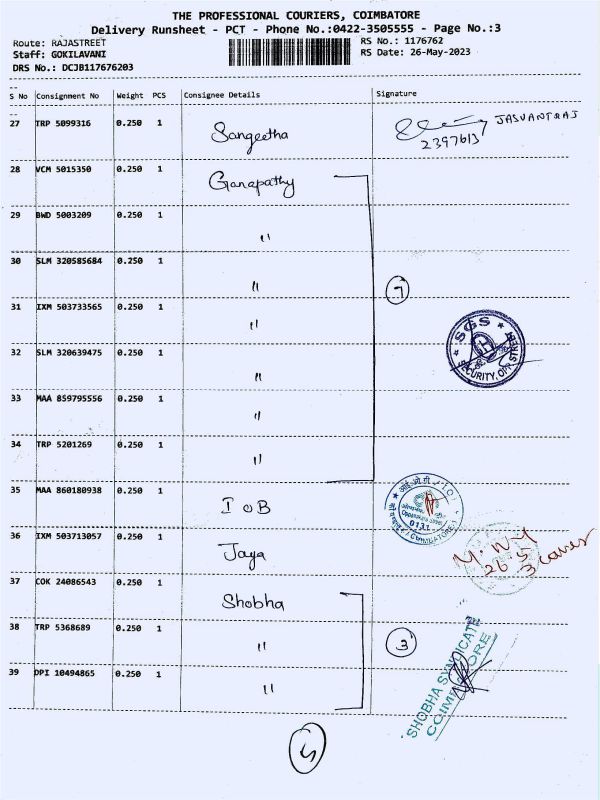 THE PROFESSIONAL COURIERS, COIMBATORE
Delivery Runsheet - PCT - Phone No.:0422-3505555 - Page No.:3
Route: RAJASTREET
RS No.: 1176762
Staff: GOKILAVANI
RS Date: 26-May-2023
DRS No.: DCJB117676203
S No Consignment No Weight PCS Consignee Details Signature
27 TRP 5099316 0.250 1 Sangeetha JASVANTRAJ
2397613
28 VCM 5015350 0.250 1 Ganapathy
29 BWD 5003209 0.250 1 "
30 SLM 320585684 0.250 1 "
7
31 IXM 503733565 0.250 1 "
32 SLM 320639475 0.250 1 "
SGS
SECURITY, OPP STREET
33 MAA 859795556 0.250 1 "
34 TRP 5201269 0.250 1 "
35 MAA 860180938 0.250 1 IOB
0131
COIMBATORE
36 IXM 503713057 0.250 1 Jaya
26 5
3 Covers
37 COK 24086543 0.250 1 Shobha
38 TRP 5368689 0.250 1 "
3
39 DPI 10494865 0.250 1 "
SHOBHA SYNDICATE
COIMBATORE